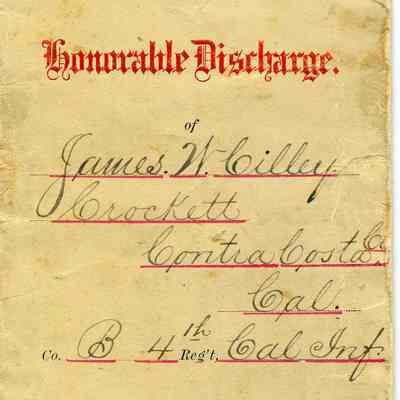 Honorable Discharge.
of
James. W. Cilley
Crockett
Contra Costa Co.
Cal.
Co. B 4th Reg't, Cal Inf.